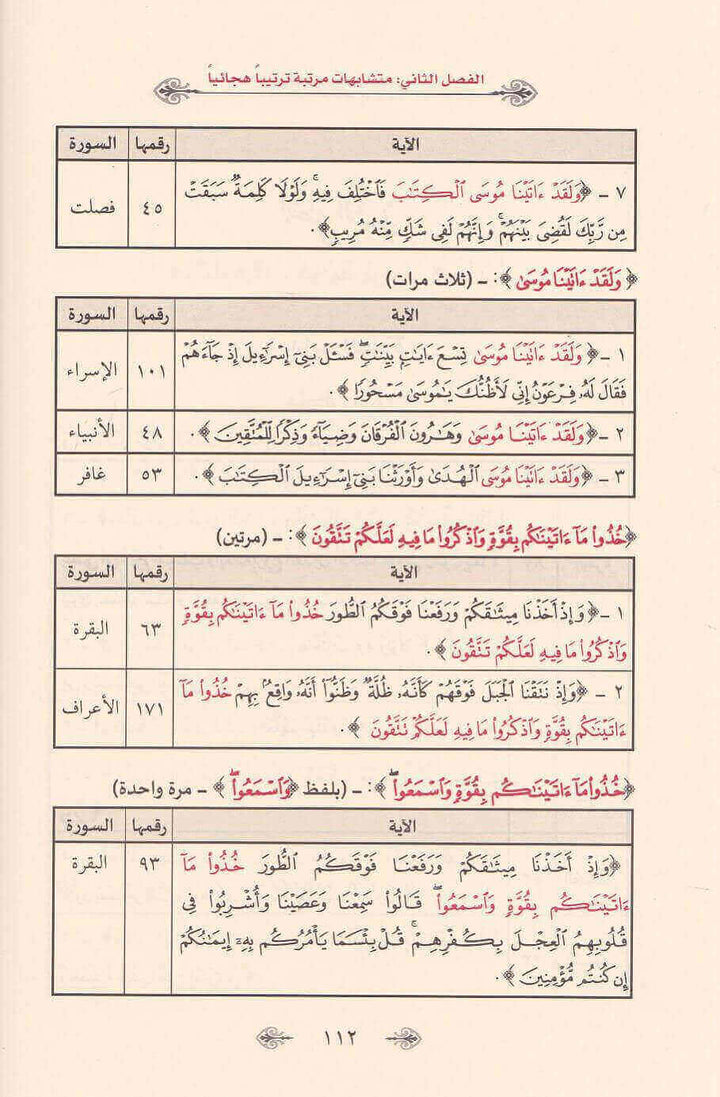 الفصل الثاني: متشابهات مرتبة ترتيباً هجائياً
الآية رقمها السورة
٧ - ﴿وَلَقَدْ ءَاتَيْنَا مُوسَى ٱلْكِتَٰبَ فَٱخْتُلِفَ فِيهِ ۚ وَلَوْلَا كَلِمَةٌ سَبَقَتْ
مِن رَّبِّكَ لَقُضِىَ بَيْنَهُمْ ۚ وَإِنَّهُمْ لَفِى شَكٍّ مِّنْهُ مُرِيبٍ﴾.
٤٥ فصلت
﴿ وَلَقَدْ ءَاتَيْنَا مُوسَىٰ ﴾: - (ثلاث مرات)
الآية رقمها السورة
١ - ﴿ وَلَقَدْ ءَاتَيْنَا مُوسَىٰ تِسْعَ ءَايَٰتٍۭ بَيِّنَٰتٍ ۖ فَسْـَٔلْ بَنِىٓ إِسْرَٰٓءِيلَ إِذْ جَآءَهُمْ
فَقَالَ لَهُۥ فِرْعَوْنُ إِنِّى لَأَظُنُّكَ يَٰمُوسَىٰ مَسْحُورًا ﴾.
١٠١ الإسراء
٢ - ﴿وَلَقَدْ ءَاتَيْنَا مُوسَىٰ وَهَٰرُونَ ٱلْفُرْقَانَ وَضِيَآءً وَذِكْرًا لِّلْمُتَّقِينَ ﴾. ٤٨ الأنبياء
٣ - ﴿وَلَقَدْ ءَاتَيْنَا مُوسَى ٱلْهُدَىٰ وَأَوْرَثْنَا بَنِىٓ إِسْرَٰٓءِيلَ ٱلْكِتَٰبَ ﴾. ٥٣ غافر
﴿خُذُوا۟ مَآ ءَاتَيْنَٰكُم بِقُوَّةٍ وَٱذْكُرُوا۟ مَا فِيهِ لَعَلَّكُمْ تَتَّقُونَ ﴾: - (مرتين)
الآية رقمها السورة
١ - ﴿ وَإِذْ أَخَذْنَا مِيثَٰقَكُمْ وَرَفَعْنَا فَوْقَكُمُ ٱلطُّورَ خُذُوا۟ مَآ ءَاتَيْنَٰكُم بِقُوَّةٍ
وَٱذْكُرُوا۟ مَا فِيهِ لَعَلَّكُمْ تَتَّقُونَ ﴾.
٦٣ البقرة
٢ - ﴿وَإِذْ نَتَقْنَا ٱلْجَبَلَ فَوْقَهُمْ كَأَنَّهُۥ ظُلَّةٌ وَظَنُّوٓا۟ أَنَّهُۥ وَاقِعٌۢ بِهِمْ خُذُوا۟ مَآ
ءَاتَيْنَٰكُم بِقُوَّةٍ وَٱذْكُرُوا۟ مَا فِيهِ لَعَلَّكُمْ تَتَّقُونَ ﴾.
١٧١ الأعراف
﴿خُذُوا۟ مَآ ءَاتَيْنَٰكُم بِقُوَّةٍ وَٱسْمَعُوا۟ ۖ ﴾: - (بلفظ ﴿وَٱسْمَعُوا۟ ۖ ﴾ - مرة واحدة)
الآية رقمها السورة
﴿وَإِذْ أَخَذْنَا مِيثَٰقَكُمْ وَرَفَعْنَا فَوْقَكُمُ ٱلطُّورَ خُذُوا۟ مَآ
ءَاتَيْنَٰكُم بِقُوَّةٍ وَٱسْمَعُوا۟ ۖ قَالُوا۟ سَمِعْنَا وَعَصَيْنَا وَأُشْرِبُوا۟ فِى
قُلُوبِهِمُ ٱلْعِجْلَ بِكُفْرِهِمْ ۚ قُلْ بِئْسَمَا يَأْمُرُكُم بِهِۦٓ إِيمَٰنُكُمْ
إِن كُنتُم مُّؤْمِنِينَ ﴾.
٩٣ البقرة
١١٢